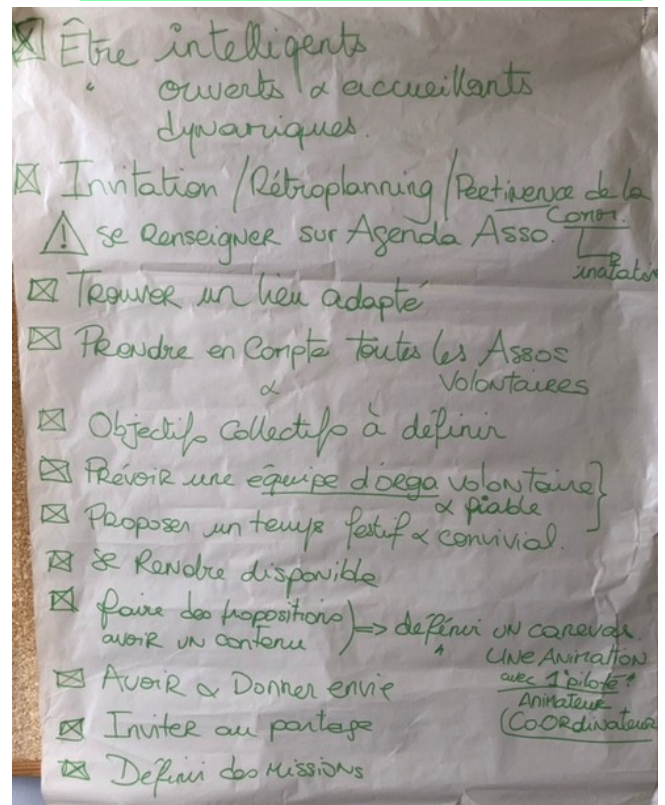 Être intelligents
" ouverts & accueillants
dynamiques.
Invitation / Rétroplanning / Pertinence de la
Comm.
⚠ Se Renseigner sur Agenda Asso.
Trouver un lieu adapté
Prendre en Compte toutes les Assos
& Volontaires
Objectifs Collectifs à définir
Prévoir une équipe d'orga volontaire
& fiable
Proposer un temps festif & convivial.
Se Rendre disponible
faire des propositions
avoir un contenu
=> définir un canevas.
" UNE ANIMATION
avec 1 "pilote"
Animateur
(COORdinateur
Avoir & Donner envie
Inviter au partage
Définir des Missions